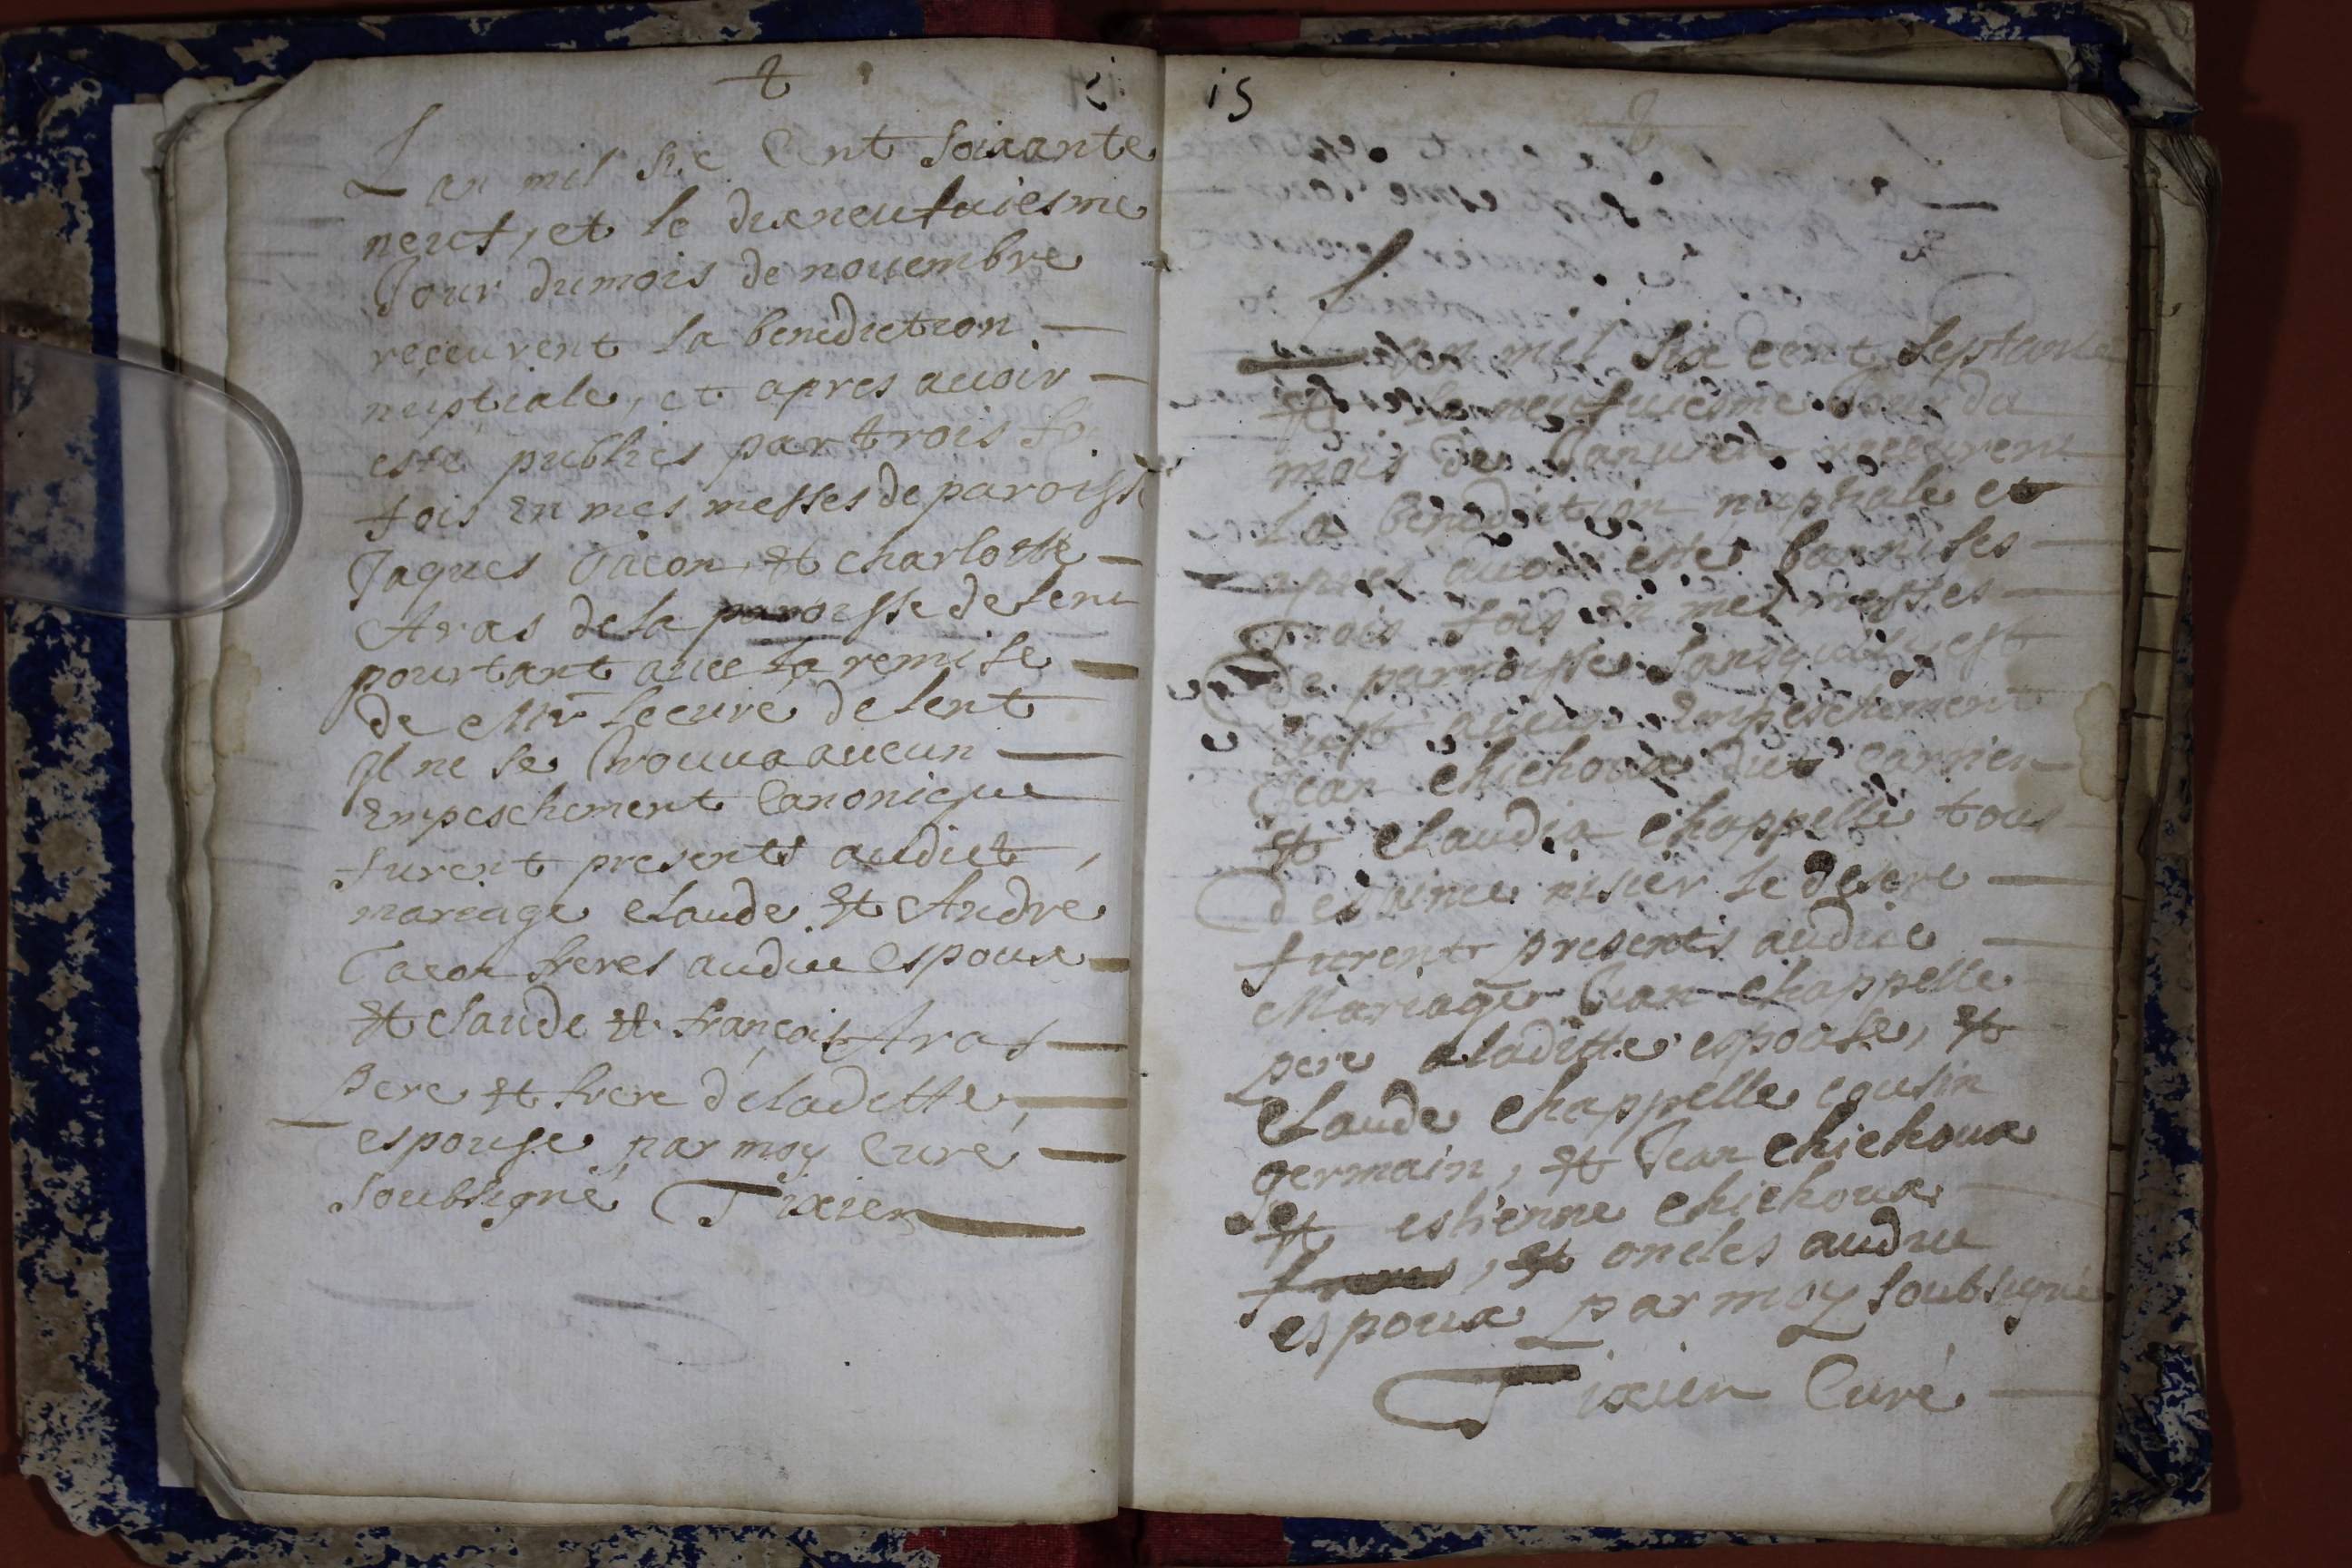 L an mil six Cent soixante
neuf, et le dixneufuiesme
Jour dumois de nouembre
receurent la benediction
nuptiale, et apres auoir
este publies par trois fo
fois En mes messes de paroisse
Jaques Tacon, et charlotte
Aras dela paroisse de lent
pourtant auec la remise
de Mr le curé de lent
Il ne se trouua aucun
Empeschement Canonique
furent presents audict
mareage claude et André
Tacon freres audict espoux
et claude et françois Aras
pere et frere deladitte
espouse par moy Curé
soubsigné Tixier
15
L an mil six cent septante
et le neufuiesme Jour du
mois de Januier receurent
La benediction nuptiale et
apres auoir estes bannises
Trois fois En mes messes
de parroisse sans quil y est
eust aucun Empeschement
Jean chichoux dict carrier
et claudia chappelle tous
de saint nisier le desert
furent presents audict
Mariage Jean chappelle
pere a laditte espouse, et
claude chappelle cousin
germain, et Jean chichoux
et estienne chichoux
, et oncles audict
espoux par moy soubsigné
Tixier Curé